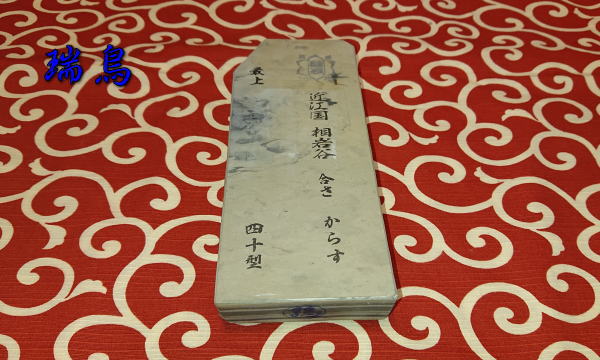 瑞鳥
近江国 相岩谷 合さ からす
最上 四十型